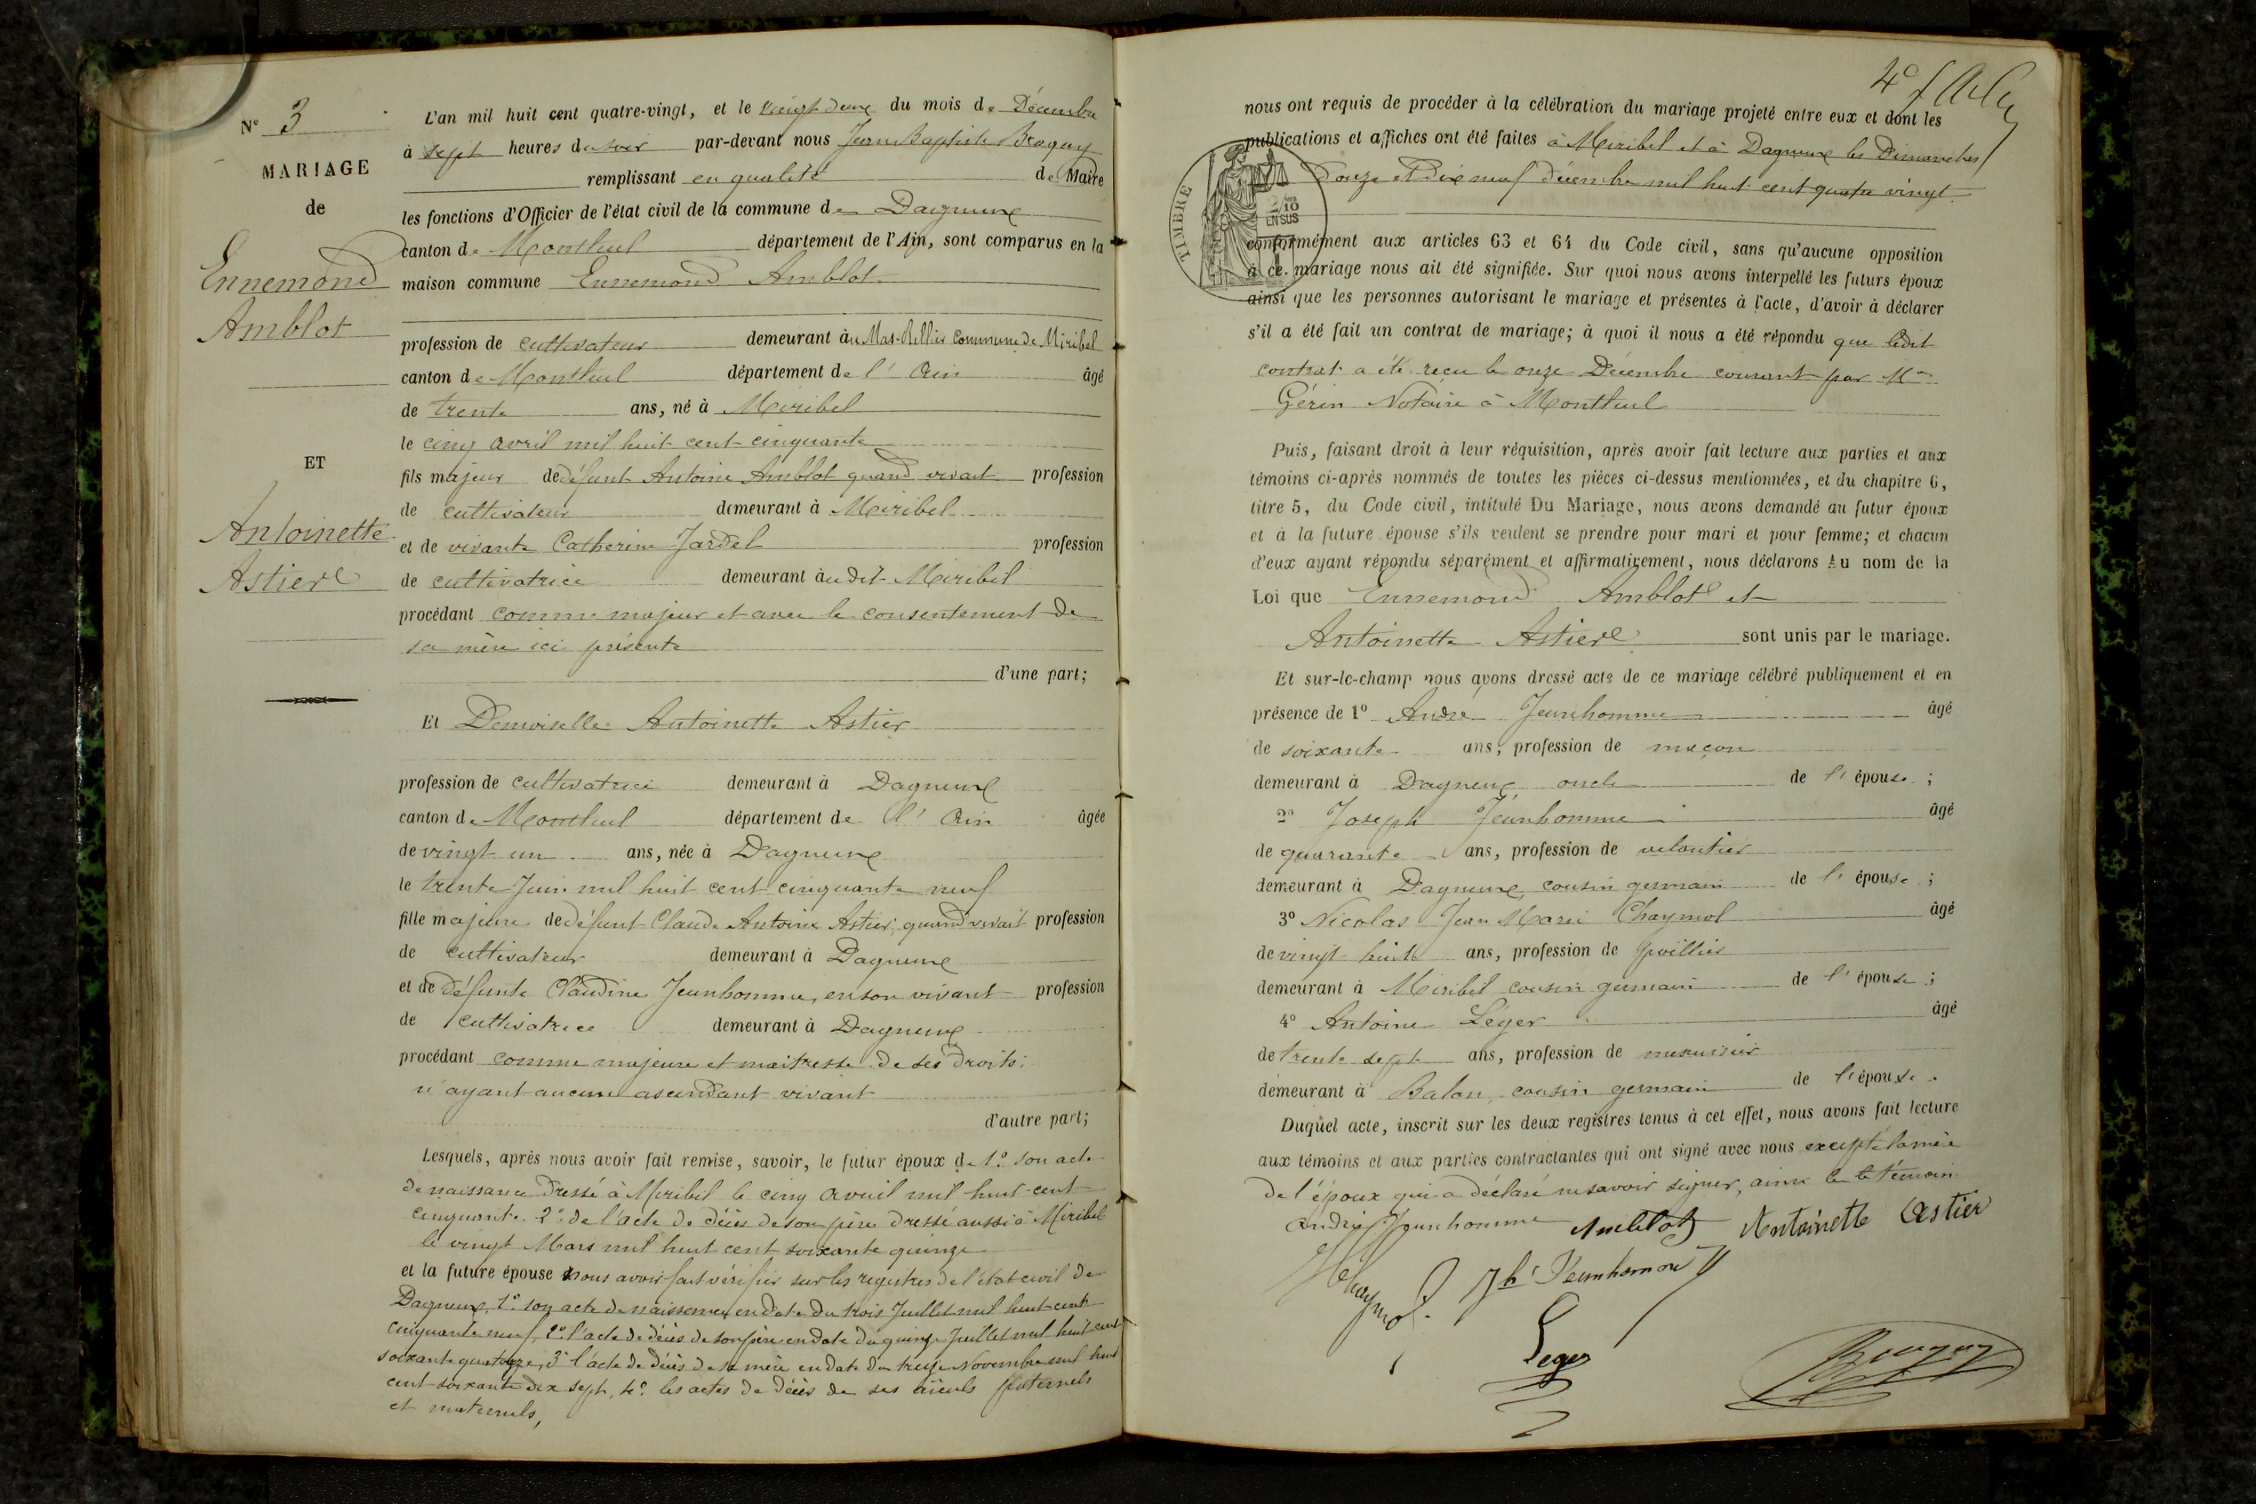 Nº 3
MARIAGE
de
Ennemond
Amblot
ET
Antoinette
Astier
L'an mil huit cent quatre-vingt, et le vingt deux du mois de Décembre
à sept heures du soir par-devant nous Jean Baptiste
remplissant en qualité de Maire
les fonctions d'Officier de l'état civil de la commune de Dagneux
canton de Montluel département de l'Ain, sont comparus en la
maison commune Ennemond Amblot
profession de cultivateur demeurant au Mas-Rillier Commune de Miribel
canton de Montluel département de l'Ain âgé
de trente ans, né à Miribel
le cinq avril mil huit cent cinquante
fils majeur de défunt Antoine Amblot quand vivait profession
de cultivateur demeurant à Miribel
et de vivante Catherine Jardel profession
de cultivatrice demeurant audit Miribel
procédant comme majeur et avec le consentement de
sa mère ici présente
d'une part;
Et Demoiselle Antoinette Astier
profession de cultivatrice demeurant à Dagneux
canton de Montluel département de l'Ain âgée
de vingt un ans, née à Dagneux
le trente Juin mil huit cent cinquante neuf
fille majeure de défunt Claude Antoine Astier, quand vivait profession
de cultivateur demeurant à Dagneux
et de défunte Claudine Jeunhomme, en son vivant profession
de cultivatrice demeurant à Dagneux
procédant comme majeure et maitresse de ses droits
n'ayant aucun ascendant vivant
d'autre part;
Lesquels, après nous avoir fait remise, savoir, le futur époux de 1º son acte
de naissance dressé à Miribel le cinq avril mil huit cent
cinquante. 2º de l'acte de décès de son père dressé aussi à Miribel
le vingt Mars mil huit cent soixante quinze
et la future épouse nous avoir fait vérifier sur les registres de l'état civil de
Dagneux, 1º son acte de naissance en date du trois Juillet mil huit cent
cinquante neuf, 2º l'acte de décès de son père en date du quinze Juillet mil huit cent
soixante quatorze, 3º l'acte de décès de sa mère en date du treize Novembre mil huit
cent soixante dix sept, 4º les actes de décès de ses aïeuls paternels
et maternels,
nous ont requis de procéder à la célébration du mariage projeté entre eux et dont les
publications et affiches ont été faites à Miribel et à Dagneux les Dimanches
Douze et Dix neuf décembre mil huit cent quatre vingt
TIMBRE
2/10
EN SUS
conformément aux articles 63 et 64 du Code civil, sans qu'aucune opposition
à ce mariage nous ait été signifiée. Sur quoi nous avons interpellé les futurs époux
ainsi que les personnes autorisant le mariage et présentes à l'acte, d'avoir à déclarer
s'il a été fait un contrat de mariage; à quoi il nous a été répondu que ledit
contrat a été reçu le onze Décembre courant par Me
Gérin Notaire à Montluel
Puis, faisant droit à leur réquisition, après avoir fait lecture aux parties et aux
témoins ci-après nommés de toutes les pièces ci-dessus mentionnées, et du chapitre 6,
titre 5, du Code civil, intitulé Du Mariage, nous avons demandé au futur époux
et à la future épouse s'ils veulent se prendre pour mari et pour femme; et chacun
d'eux ayant répondu séparément et affirmativement, nous déclarons Au nom de la
Loi que Ennemond Amblot et
Antoinette Astier sont unis par le mariage.
Et sur-le-champ nous avons dressé acte de ce mariage célébré publiquement et en
présence de 1º André Jeunhomme âgé
de soixante ans, profession de maçon
demeurant à Dagneux, oncle de l'épouse;
2º Joseph Jeunhomme âgé
de quarante ans, profession de veloutier
demeurant à Dagneux cousin germain de l'épouse;
3º Nicolas Jean Marie Chaymol âgé
de vingt huit ans, profession de
demeurant à Miribel cousin germain de l'épouse;
4º Antoine Léger âgé
de trente sept ans, profession de menuisier
demeurant à Balan, cousin germain de l'épouse.
Duquel acte, inscrit sur les deux registres tenus à cet effet, nous avons fait lecture
aux témoins et aux parties contractantes qui ont signé avec nous excepté la mère
de l'époux qui a déclaré ne savoir signer, ainsi que le témoin
André Jeunhomme Amblot Antoinette Astier
Chaymol Jh Jeunhomme
Leger